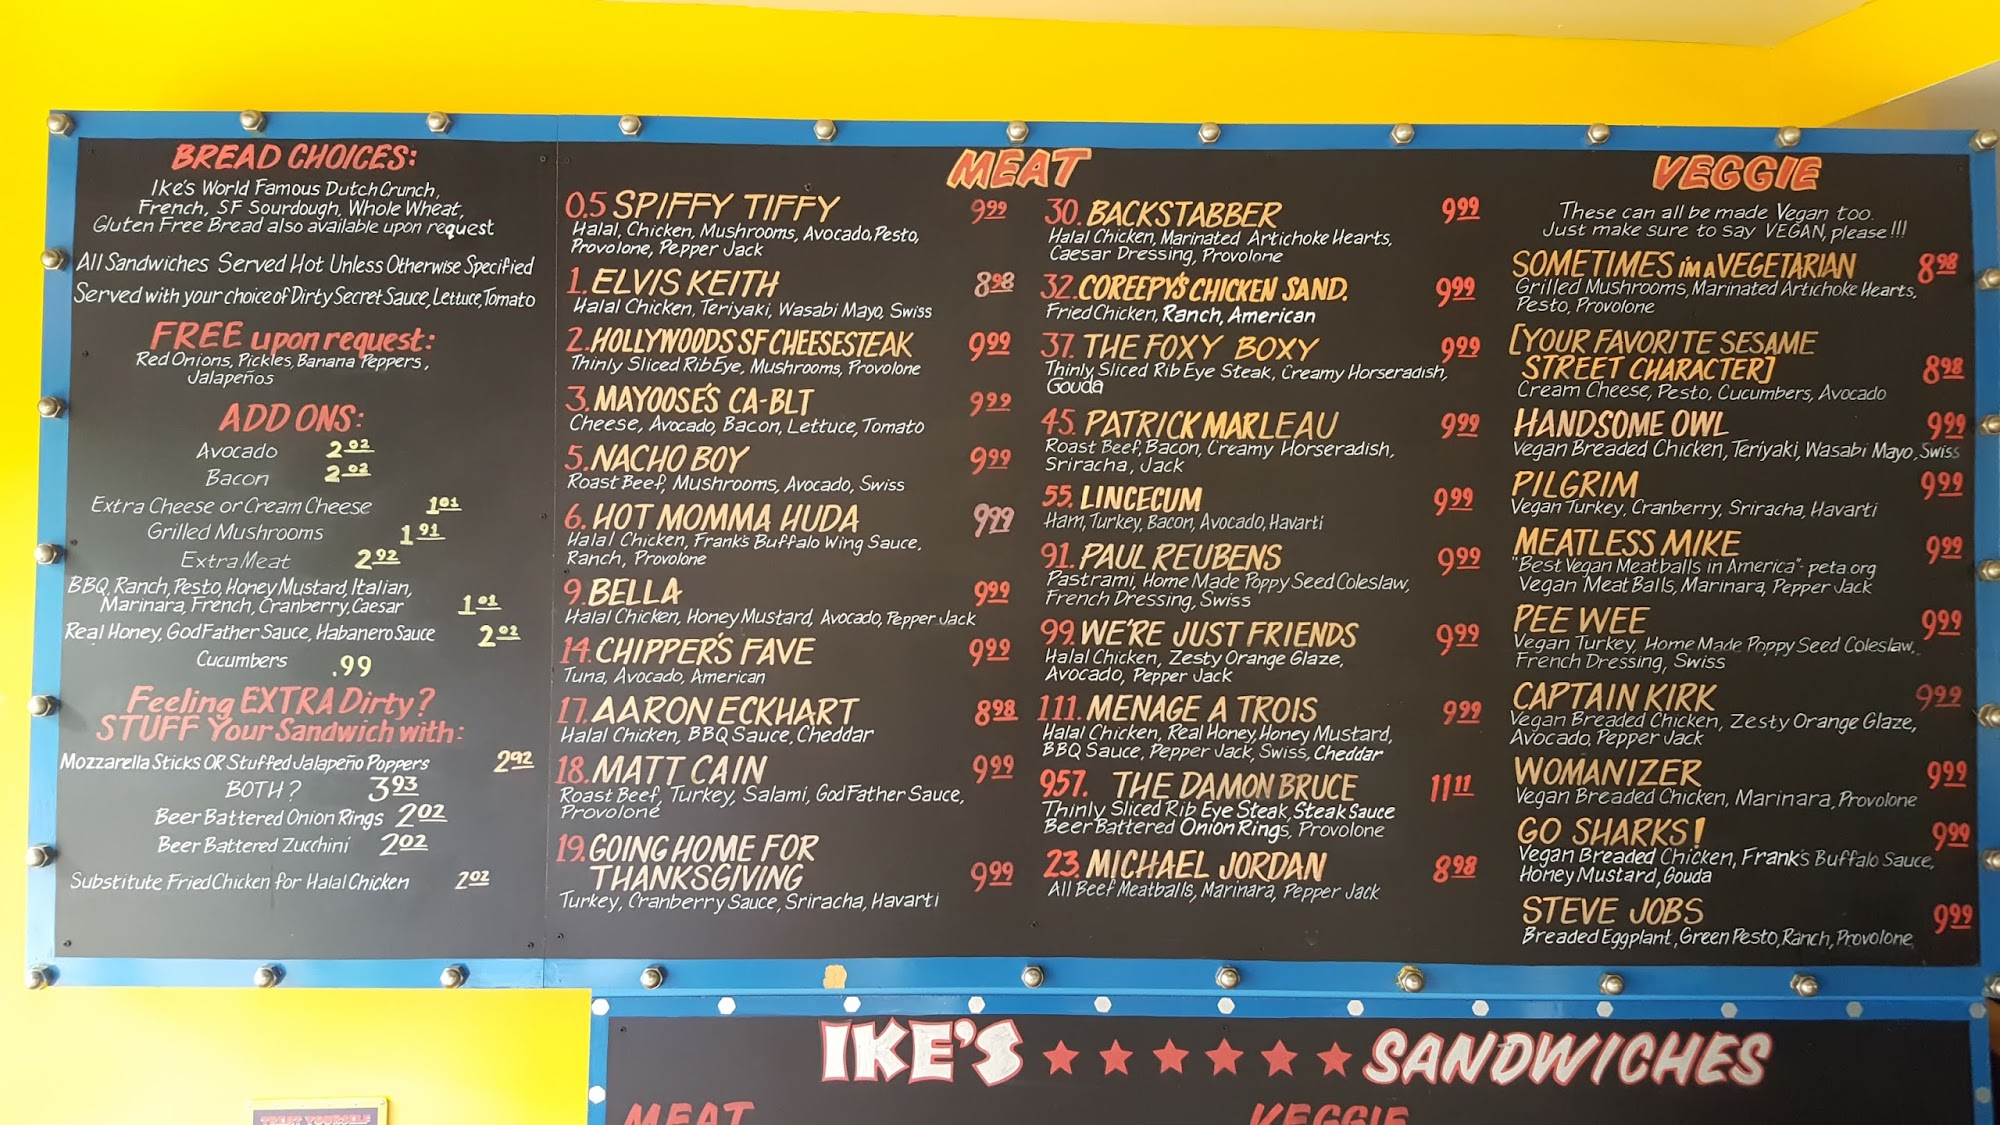 BREAD CHOICES:
Ike's World Famous Dutch Crunch,
French, SF Sourdough, Whole Wheat,
Gluten Free Bread also available upon request
All Sandwiches Served Hot Unless Otherwise Specified
Served with your choice of Dirty Secret Sauce, Lettuce, Tomato
FREE upon request:
Red Onions, Pickles, Banana Peppers,
Jalapeños
ADD ONS:
Avocado 2.02
Bacon 2.02
Extra Cheese or Cream Cheese 1.01
Grilled Mushrooms 1.91
Extra Meat 2.92
BBQ, Ranch, Pesto, Honey Mustard, Italian,
Marinara, French, Cranberry, Caesar 1.01
Real Honey, God Father Sauce, Habanero Sauce 2.02
Cucumbers .99
Feeling EXTRA Dirty?
STUFF Your Sandwich with:
Mozzarella Sticks OR Stuffed Jalapeño Poppers 2.92
BOTH? 3.93
Beer Battered Onion Rings 2.02
Beer Battered Zucchini 2.02
Substitute Fried Chicken for Halal Chicken 2.02
MEAT
0.5 SPIFFY TIFFY 9.99
Halal, Chicken, Mushrooms, Avocado, Pesto,
Provolone, Pepper Jack
1. ELVIS KEITH 8.98
Halal Chicken, Teriyaki, Wasabi Mayo, Swiss
2. HOLLYWOODS SF CHEESESTEAK 9.99
Thinly Sliced Rib Eye, Mushrooms, Provolone
3. MAYOOSE'S CA-BLT 9.99
Cheese, Avocado, Bacon, Lettuce, Tomato
5. NACHO BOY 9.99
Roast Beef, Mushrooms, Avocado, Swiss
6. HOT MOMMA HUDA 9.99
Halal Chicken, Frank's Buffalo Wing Sauce,
Ranch, Provolone
9. BELLA 9.99
Halal Chicken, Honey Mustard, Avocado, Pepper Jack
14. CHIPPER'S FAVE 9.99
Tuna, Avocado, American
17. AARON ECKHART 8.98
Halal Chicken, BBQ Sauce, Cheddar
18. MATT CAIN 9.99
Roast Beef, Turkey, Salami, God Father Sauce,
Provolone
19. GOING HOME FOR
THANKSGIVING 9.99
Turkey, Cranberry Sauce, Sriracha, Havarti
30. BACKSTABBER 9.99
Halal Chicken, Marinated Artichoke Hearts,
Caesar Dressing, Provolone
32. COREEPY'S CHICKEN SAND. 9.99
Fried Chicken, Ranch, American
37. THE FOXY BOXY 9.99
Thinly Sliced Rib Eye Steak, Creamy Horseradish,
Gouda
45. PATRICK MARLEAU 9.99
Roast Beef, Bacon, Creamy Horseradish,
Sriracha, Jack
55. LINCECUM 9.99
Ham, Turkey, Bacon, Avocado, Havarti
91. PAUL REUBENS 9.99
Pastrami, Home Made Poppy Seed Coleslaw,
French Dressing, Swiss
99. WE'RE JUST FRIENDS 9.99
Halal Chicken, Zesty Orange Glaze,
Avocado, Pepper Jack
111. MENAGE A TROIS 9.99
Halal Chicken, Real Honey, Honey Mustard,
BBQ Sauce, Pepper Jack, Swiss, Cheddar
957. THE DAMON BRUCE 11.11
Thinly Sliced Rib Eye Steak, Steak Sauce
Beer Battered Onion Rings, Provolone
23. MICHAEL JORDAN 8.98
All Beef Meatballs, Marinara, Pepper Jack
VEGGIE
These can all be made Vegan too.
Just make sure to say VEGAN, please!!!
SOMETIMES i'm A VEGETARIAN 8.98
Grilled Mushrooms, Marinated Artichoke Hearts,
Pesto, Provolone
[YOUR FAVORITE SESAME
STREET CHARACTER] 8.98
Cream Cheese, Pesto, Cucumbers, Avocado
HANDSOME OWL 9.99
Vegan Breaded Chicken, Teriyaki, Wasabi Mayo, Swiss
PILGRIM 9.99
Vegan Turkey, Cranberry, Sriracha, Havarti
MEATLESS MIKE 9.99
"Best Vegan Meatballs in America"- peta.org
Vegan Meat Balls, Marinara, Pepper Jack
PEE WEE 9.99
Vegan Turkey, Home Made Poppy Seed Coleslaw,
French Dressing, Swiss
CAPTAIN KIRK 9.99
Vegan Breaded Chicken, Zesty Orange Glaze,
Avocado, Pepper Jack
WOMANIZER 9.99
Vegan Breaded Chicken, Marinara, Provolone
GO SHARKS! 9.99
Vegan Breaded Chicken, Frank's Buffalo Sauce,
Honey Mustard, Gouda
STEVE JOBS 9.99
Breaded Eggplant, Green Pesto, Ranch, Provolone
IKE'S SANDWICHES
MEAT VEGGIE
TREAT YOURSELF